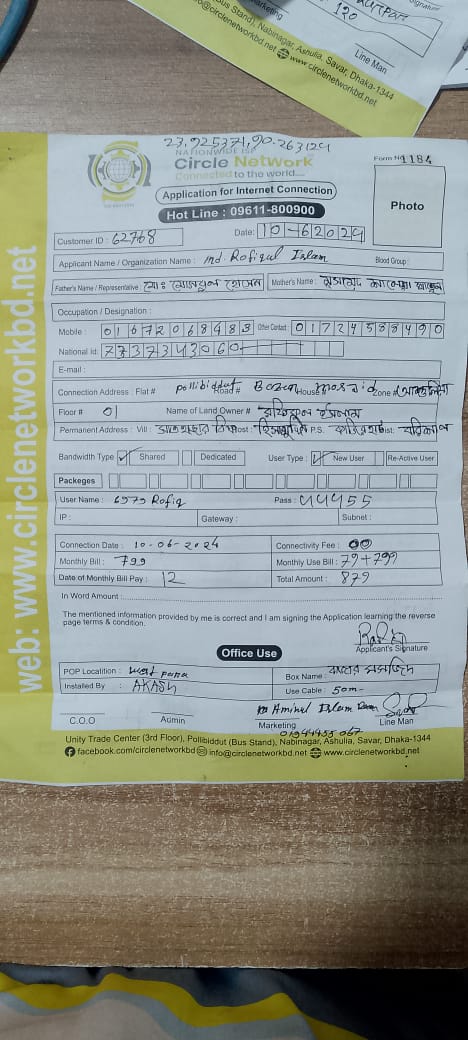 Signature
120
Marketing
Line Man
(Bus Stand), Nabinagar, Ashulia, Savar, Dhaka-1344
info@circlenetworkbd.net www.circlenetworkbd.net
23.925371,90.263124
NATIONWIDE ISP
Circle Network
Connected to the world....
Form No 1184
Application for Internet Connection
Hot Line : 09611-800900
Photo
Customer ID : 62768
Date: 10-062024
Applicant Name / Organization Name : Md. Rofiqul Islam Blood Group :
Father's Name / Representative : মোঃ হোসেন Mother's Name :
Occupation / Designation :
Mobile : 01672068483 Other Contact : 01724588490
National Id: 7737343060
E-mail :
Connection Address : Flat # pollibiddut Road # Bazar House # mosjid Zone #
Floor # 01 Name of Land Owner # রফিকুল ইসলাম
Permanent Address : Vill : Post : P.S. Dist:
Bandwidth Type Shared Dedicated User Type : New User Re-Active User
Packeges
User Name : 6979 Rofiq Pass : 44455
IP : Gateway : Subnet :
Connection Date : 10-06-2024 Connectivity Fee : 00
Monthly Bill : 799 Monthly Use Bill : 79+799
Date of Monthly Bill Pay : 12 Total Amount : 879
In Word Amount :
The mentioned information provided by me is correct and I am signing the Application learning the reverse
page terms & condition.
Applicant's Signature
Office Use
POP Localtion : West para Box Name : বাজার মসজিদ
Installed By : AKASH Use Cable : 50m-
Aminul Islam
C.O.O Admin Marketing Line Man
01944455067
Unity Trade Center (3rd Floor), Pollibiddut (Bus Stand), Nabinagar, Ashulia, Savar, Dhaka-1344
facebook.com/circlenetworkbd info@circlenetworkbd.net www.circlenetworkbd.net
web: www.circlenetworkbd.net